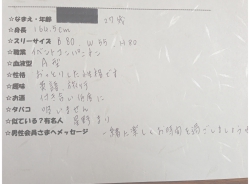 ☆なまえ・年齢 27歳
☆身長 160.5cm
☆スリーサイズ B.80 W.55 H.80
☆職業 イベントコンパニオン
☆血液型 A型
☆性格 おっとりした性格です
☆趣味 英語 旅行
☆お酒 付き合い程度に
☆タバコ 吸いません
☆似ている?有名人 星野まり
☆男性会員さまへメッセージ
一緒に楽しくお時間を過ごしましょう